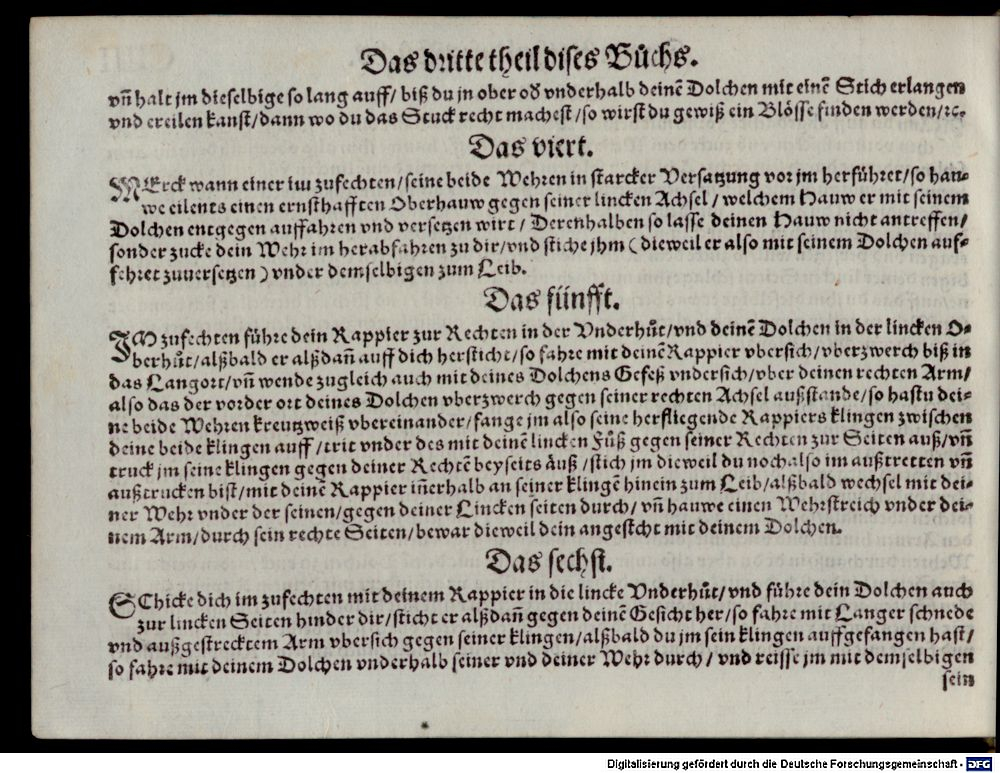 Das dritte theil dises Bůchs.
vñ halt jm dieselbige so lang auff/ biß du jn ober oð vnderhalb deinē Dolchen mit einē Stich erlangen
vnd ereilen kanst/dann wo du das Stuck recht machest/so wirst du gewiß ein Blösse finden werden/ꝛc.
Das viert.
MErck wann einer im zufechten/seine beide Wehren in starcker Versatzung vor jm herführet/so hau-
we eilents einen ernsthafften Oberhauw gegen seiner lincken Achsel/ welchem Hauw er mit seinem
Dolchen entgegen auffahren vnd versetzen wirt/ Derenhalben so lasse deinen Hauw nicht antreffen/
sonder zucke dein Wehr im herabfahren zu dir/vnd stiche jhm (dieweil er also mit seinem Dolchen auf-
fehret zuuersetzen) vnder demselbigen zum Leib.
Das fünfft.
IM zufechten führe dein Rappier zur Rechten in der Vnderhůt/vnd deinē Dolchen in der lincken O-
berhůt/alßbald er alßdañ auff dich hersticht/so fahre mit deinē Rappier vbersich/vberzwerch biß in
das Langort/vñ wende zugleich auch mit deines Dolchens Gefeß vndersich/vber deinen rechten Arm/
also das der vorder ort deines Dolchen vberzwerch gegen seiner rechten Achsel außstande/so hastu dei-
ne beide Wehren kreutzweiß vbereinander/fange jm also seine herfliegende Rappiers klingen zwischen
deine beide klingen auff/trit vnder des mit deinē lincken Fůß gegen seiner Rechten zur Seiten auß/vñ
truck jm seine klingen gegen deiner Rechtē beyseits äuß/stich jm dieweil du noch also im außtretten vñ
außtrucken bist/mit deinē Rappier iñerhalb an seiner klingē hinein zum Leib/alßbald wechsel mit dei-
ner Wehr vnder der seinen/gegen deiner Lincken seiten durch/ vñ hauwe einen Wehrstreich vnder dei-
nem Arm/durch sein rechte Seiten/bewar dieweil dein angesicht mit deinem Dolchen.
Das sechst.
SChicke dich im zufechten mit deinem Rappier in die lincke Vnderhůt/vnd führe dein Dolchen auch
zur lincken Seiten hinder dir/sticht er alßdañ gegen deinē Gesicht her/so fahre mit Langer schnede
vnd außgestrecktem Arm vbersich gegen seiner klingen/alßbald du jm sein klingen auffgefangen hast/
so fahre mit deinem Dolchen vnderhalb seiner vnd deiner Wehr durch/ vnd reisse jm mit demselbigen
sein
Digitalisierung gefördert durch die Deutsche Forschungsgemeinschaft - DFG